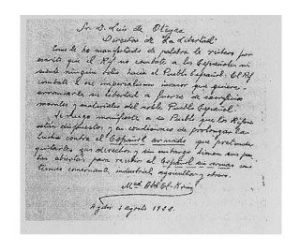 Sr. D. Luis de Oteyza
Director de La Libertad.
Como le he manifestado de palabra le reitero por
escrito que el Rif no combate a los Españoles ni
siente ningun odio hacia el Pueblo Español. El Rif
combate a ese imperialismo invasor que quiere
arrancarle su libertad a fuerza de sacrificios
morales y materiales del noble Pueblo Español.
Le ruego manifieste a su Pueblo que los Rifeños
están dispuestos y en condiciones de prolongar la
lucha contra el Español armado que pretenda
quitarles sus derechos y sin embargo tienen sus
puertas abiertas para recibir al Español sin armas como
técnico comerciante, industrial, agricultor y obrero.
Med Abd El-Krim
Aydir 2 Agosto 1922